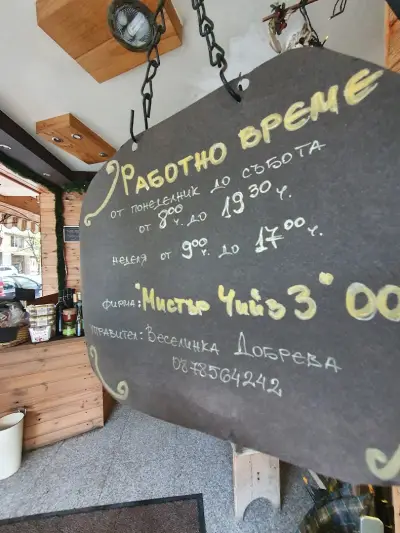 РАБОТНО ВРЕМЕ
ОТ ПОНЕДЕЛНИК ДО СЪБОТА
ОТ 8⁰⁰ Ч. ДО 19³⁰ Ч.
НЕДЕЛЯ ОТ 9⁰⁰ Ч. ДО 17⁰⁰ Ч.
ФИРМА: "Мистър Чийз 3" ОО
УПРАВИТЕЛ: ВЕСЕЛИНКА ДОБРЕВА
0878564242